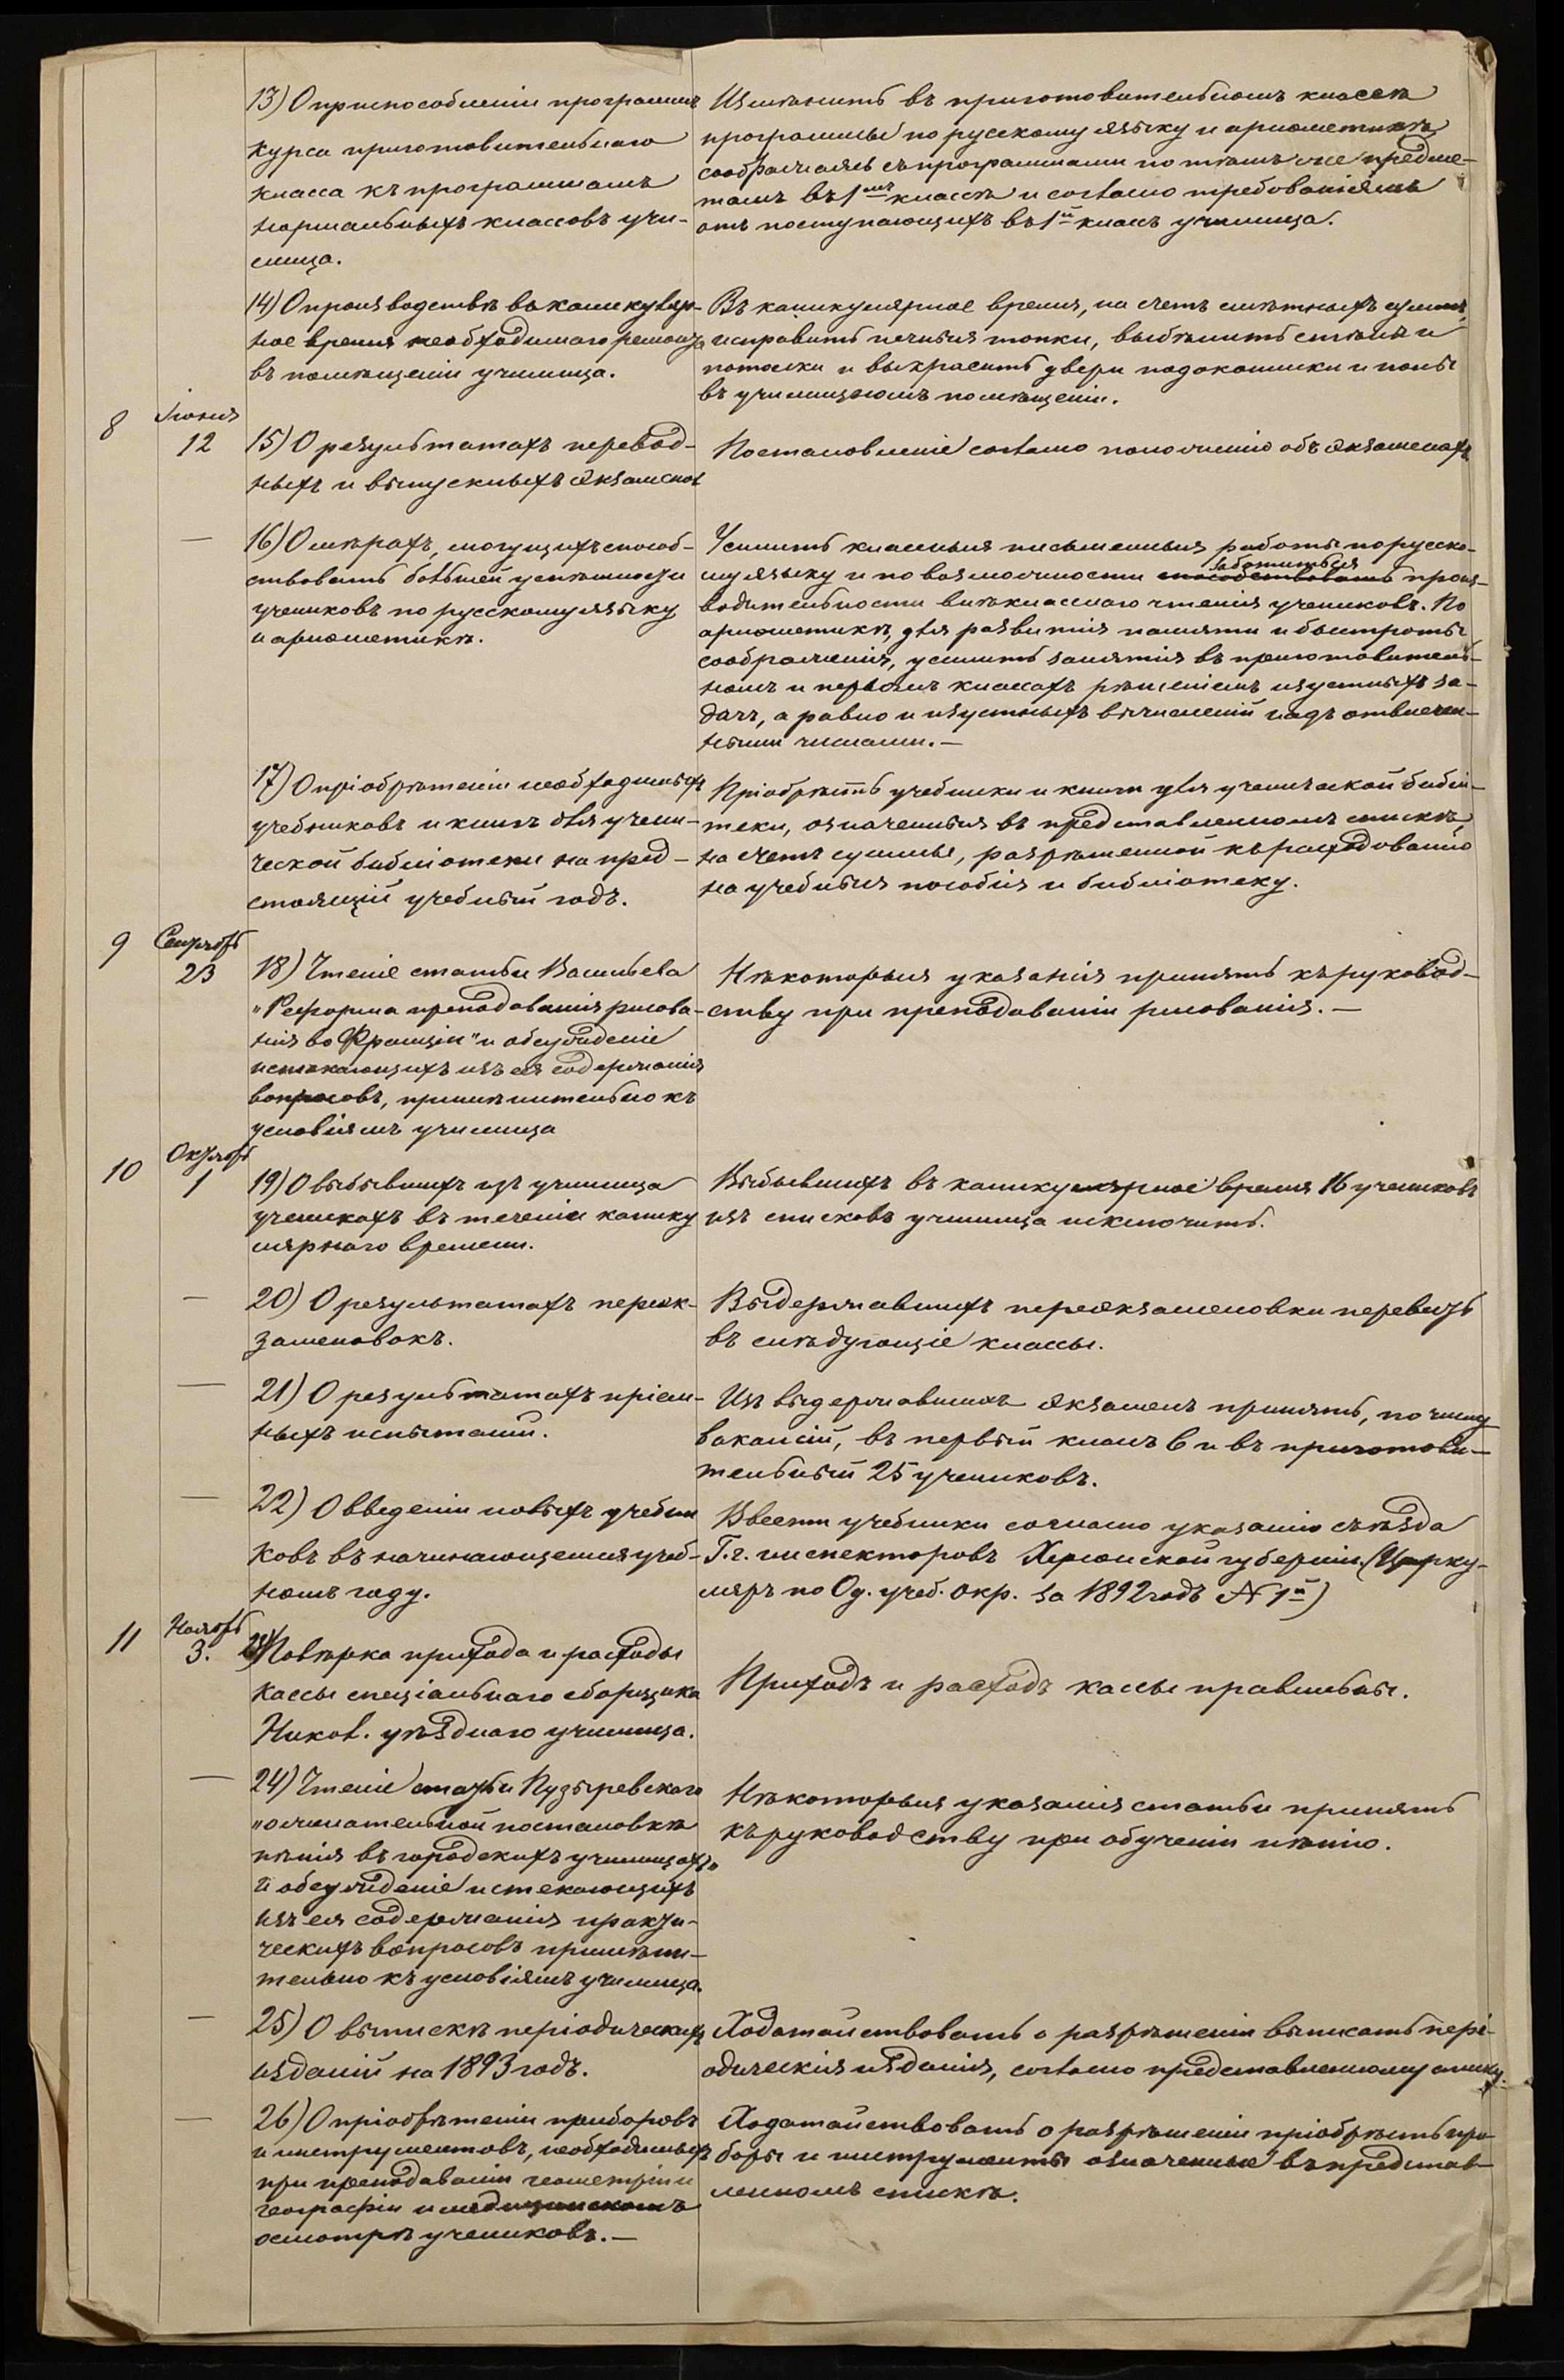 13) О приспособленіи программъ
курса приготовительнаго
класса къ программамъ
нормальныхъ классовъ учи-
лища.
Измѣнить въ приготовительномъ классѣ
программы по русскому языку и ариѳметикѣ,
сообразуясь съ программами по тѣмъ же предме-
тамъ въ 1мъ классѣ и согласно требованіямъ
отъ поступающихъ въ 1й классъ училища.
14) О производствѣ въ каникуляр-
ное время необходимаго ремонта
въ помѣщеніи училища.
Въ каникулярное время, на счетъ смѣтныхъ суммъ,
исправить печныя топки, выбѣлить стѣны и
потолки и выкрасить двери подоконники и полы
въ училищномъ помѣщеніи.
8
Іюня
12
15) О результатахъ перевод-
ныхъ и выпускныхъ экзаменовъ
Постановленіе согласно положенію объ экзаменахъ
—
16) О мѣрахъ, могущихъ способ-
ствовать большей успѣшности
учениковъ по русскому языку
и ариѳметикѣ.
Усилить классныя письменныя работы по русско-
му языку и по возможности заботиться о произ-
водительности внѣкласснаго чтенія учениковъ. По
ариѳметикѣ, для развитія памяти и быстроты
соображенія, усилить занятія въ приготовитель-
номъ и первомъ классахъ рѣшеніемъ изустныхъ за-
дачъ, а равно и изустныхъ вычисленій надъ отвлечен-
ными числами. —
17) О пріобрѣтеніи необходимыхъ
учебниковъ и книгъ для учени-
ческой библіотеки на пред-
стоящій учебный годъ.
Пріобрѣсть учебники и книги для ученической библі-
теки, означенныя въ представленномъ спискѣ,
на счетъ суммы, разрѣшенной къ расходованію
на учебныя пособія и библіотеку.
9
Сентябрь
23
18) Чтеніе статьи Васильева
„Реформа преподаванія рисова-
нія во Франціи" и обсужденіе
истекающихъ изъ ея содержанія
вопросовъ, примѣнительно къ
условіямъ училища
Нѣкоторыя указанія принять къ руковод-
ству при преподаваніи рисованія. —
10
Октябрь
1
19) О выбывшихъ изъ училища
ученикахъ въ теченіи канику
лярнаго времени.
Выбывшихъ въ каникулярное время 16 учениковъ
изъ списковъ училища исключить.
—
20) О результатахъ переэк-
заменовокъ.
Выдержавшихъ переэкзаменовки перевесть
въ слѣдующіе классы.
—
21) О результатахъ пріем-
ныхъ испытаній.
Изъ выдержавшихъ экзаменъ принять, по числу
вакансій, въ первый классъ 6 и въ приготови-
тельный 25 учениковъ.
—
22) О введеніи новыхъ учебни
ковъ въ начинающемся учеб-
номъ году.
Ввести учебники согласно указанію съѣзда
Г.г. инспекторовъ Херсонской губерніи. (Цирку-
ляръ по Од. учеб. окр. за 1892 годъ № 1й)
11
Ноябрь
3.
23) Повѣрка прихода и расхода
кассы спеціальнаго сборщика
Никол. уѣзднаго училища.
Приходъ и расходъ кассы правильны.
—
24) Чтеніе статьи Пузыревскаго
„о желательной постановкѣ
пѣнія въ городскихъ училищахъ"
и обсужденіе истекающихъ
изъ ея содержанія практи-
ческихъ вопросовъ примѣни-
тельно къ условіямъ училища.
Нѣкоторыя указанія статьи принять
къ руководству при обученіи пѣнію.
—
25) О выпискѣ періодическихъ
изданій на 1893 годъ.
Ходатайствовать о разрѣшеніи выписать пері-
одическія изданія, согласно представленному списку.
—
26) О пріобрѣтеніи приборовъ
и инструментовъ, необходимыхъ
при преподаваніи геометріи
географіи и медицинскомъ
осмотрѣ учениковъ. —
Ходатайствовать о разрѣшеніи пріобрѣсть при-
боры и инструменты означенные въ представ-
ленномъ спискѣ.